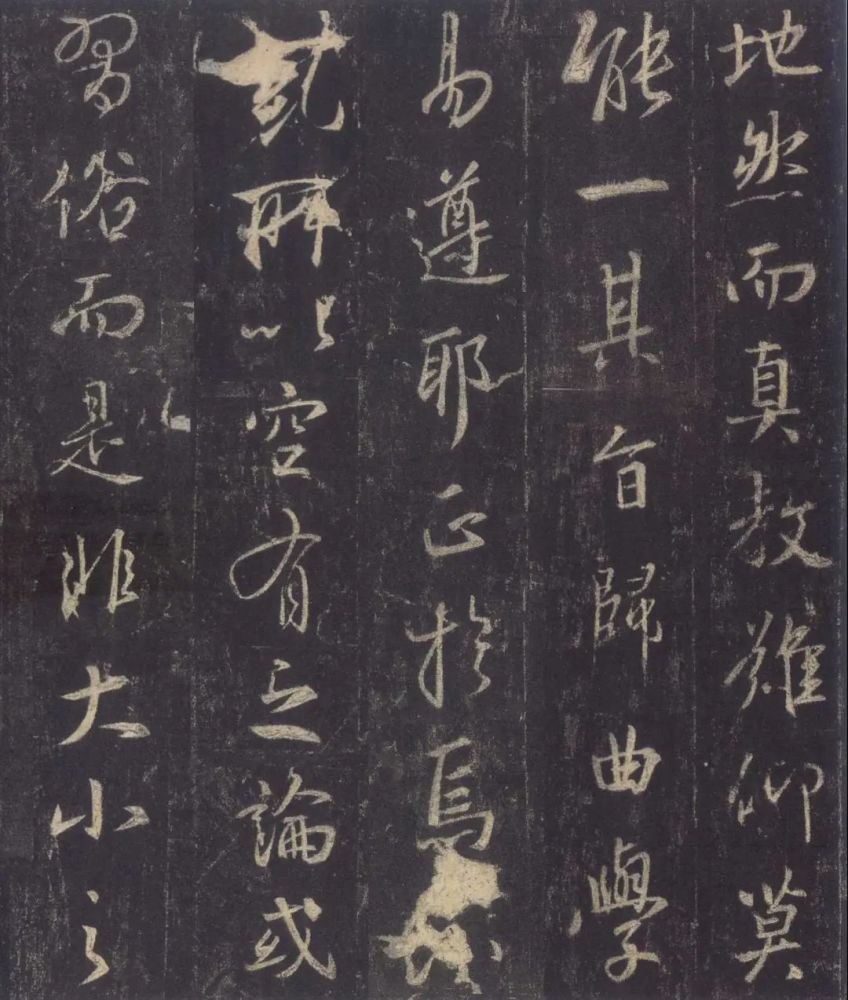 地然而真教難仰莫
能一其旨歸曲學
易遵耶正於焉
所以空有之論或
習俗而是非大小之